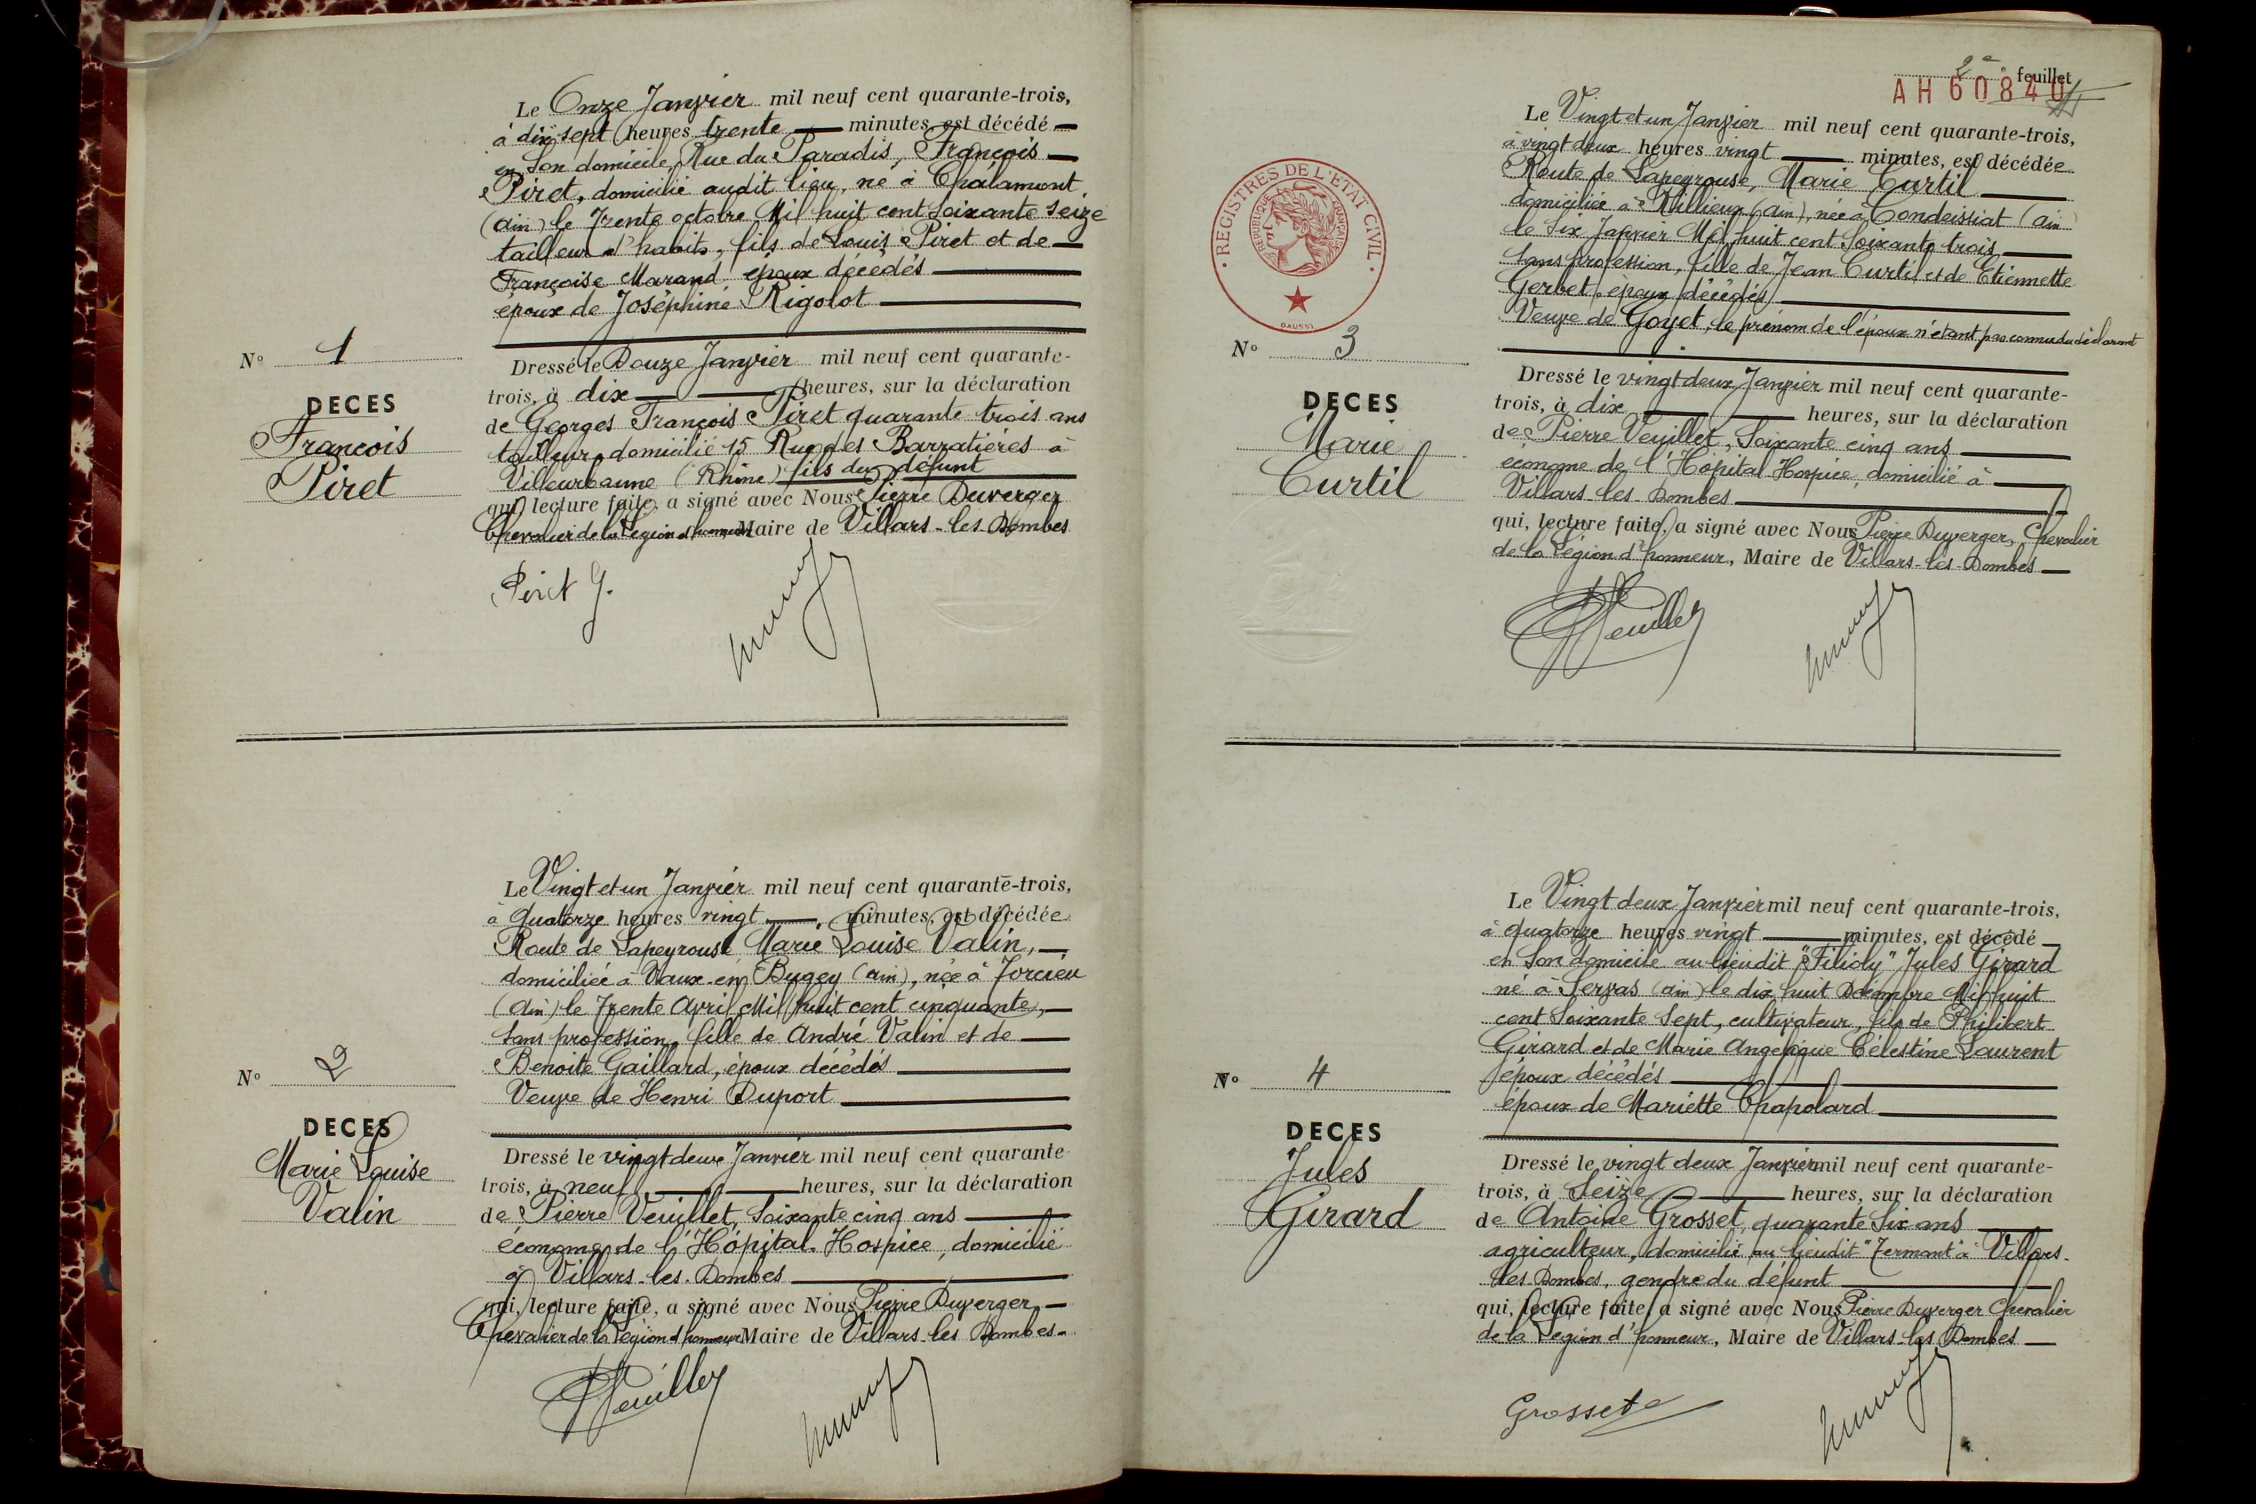 Le Onze Janvier mil neuf cent quarante-trois,
à dix sept heures trente minutes est décédé
en Son domicile, Rue du Paradis, François
Piret, domicilié audit lieu, né à Chalamont
(ain) le Trente octobre Mil huit cent Soixante seize
tailleur d'habits, fils de Louis Piret et de
Françoise Marand époux décédés
époux de Joséphine Rigolot
Nº 1
DECES
François
Piret
Dressé le Douze Janvier mil neuf cent quarante-
trois, à dix heures, sur la déclaration
de Georges François Piret quarante trois ans
tailleur, domicilié 15 Rue des Barratières à
Villeurbanne (Rhône) fils du défunt
qui, lecture faite, a signé avec Nous Pierre Duverger
Chevalier de la Légion d'honneur Maire de Villars-les-Dombes
Piret G.
Le Vingt et un Janvier mil neuf cent quarante-trois,
à quatorze heures vingt minutes, est décédée
Route de Lapeyrouse Marie Louise Valin,
domiciliée à Vaux-en Bugey (ain), née à Torcieu
(ain) le Trente Avril Mil huit cent cinquante,
sans profession, fille de André Valin et de
Benoite Gaillard, époux décédés
Veuve de Henri Duport
Nº 2
DECES
Marie Louise
Valin
Dressé le vingt deux Janvier mil neuf cent quarante-
trois, à neuf heures, sur la déclaration
de Pierre Veuillet, Soixante cinq ans
économe de l'Hôpital-Hospice, domicilié
à Villars-les-Dombes
qui, lecture faite, a signé avec Nous Pierre Duverger
Chevalier de la Légion d'honneur Maire de Villars-les Dombes
PVeuillet
2e feuillet
AH 60840
Le Vingt et un Janvier mil neuf cent quarante-trois,
à vingt deux heures vingt minutes, est décédée
Route de Lapeyrouse, Marie Curtil
domiciliée à Villieux (ain), née à Condeissiat (ain)
le Six Janvier Mil huit cent Soixante trois
sans profession, fille de Jean Curtil et de Etiennette
Gerbet, époux décédés
Veuve de Goyet, le prénom de l'époux n'étant pas connu du déclarant
REGISTRES DE L'ETAT CIVIL
REPUBLIQUE FRANÇAISE
DAUSSY
Nº 3
DECES
Marie
Curtil
Dressé le vingt deux Janvier mil neuf cent quarante-
trois, à dix heures, sur la déclaration
de Pierre Veuillet, Soixante cinq ans
économe de l'Hôpital Hospice, domicilié à
Villars-les Dombes
qui, lecture faite, a signé avec Nous Pierre Duverger, Chevalier
de la Légion d'honneur, Maire de Villars-les-Dombes
PVeuillet
Le Vingt deux Janvier mil neuf cent quarante-trois,
à quatorze heures vingt minutes, est décédé
en Son domicile au lieudit "Filioly" Jules Girard
né à Servas (ain) le dix huit Décembre Mil huit
cent Soixante Sept, cultivateur, fils de Philibert
Girard et de Marie Angélique Célestine Laurent
époux décédés
époux de Mariette Chapolard
Nº 4
DECES
Jules
Girard
Dressé le vingt deux Janvier mil neuf cent quarante-
trois, à Seize heures, sur la déclaration
de Antoine Grosset, quarante Six ans
agriculteur, domicilié au lieudit "Termant" à Villars-
les-Dombes, gendre du défunt
qui, lecture faite, a signé avec Nous Pierre Duverger Chevalier
de la Légion d'honneur, Maire de Villars-les Dombes
Grosset